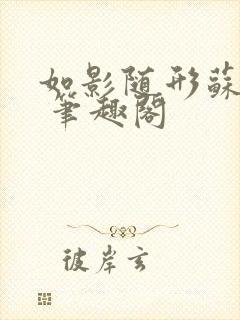 如影随形蘇
筆趣閣
彼岸玄